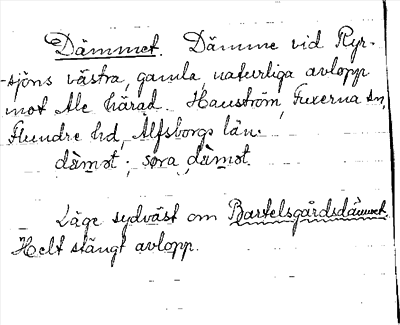 Dämmet. Dämme vid Ryr-
sjöns västra, gamla naturliga avlopp
mot Ale härad. Hanström, Fuxerna sn,
Flundre hd, Älfsborgs län.
dämət; søra dämət.
Läge sydväst om Bartelsgårdsdämmet.
Helt stängt avlopp.